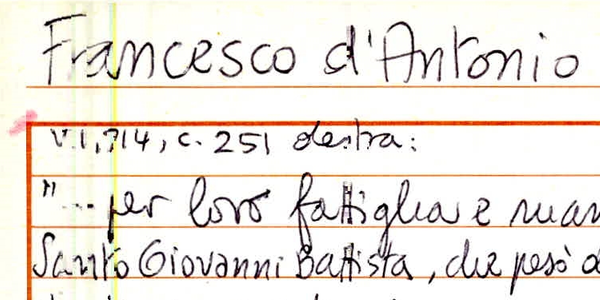 Francesco d'Antonio
V.1, 714, c. 251 destra:
"... per loro fattiglia e
Santo Giovanni Battista, che pesò